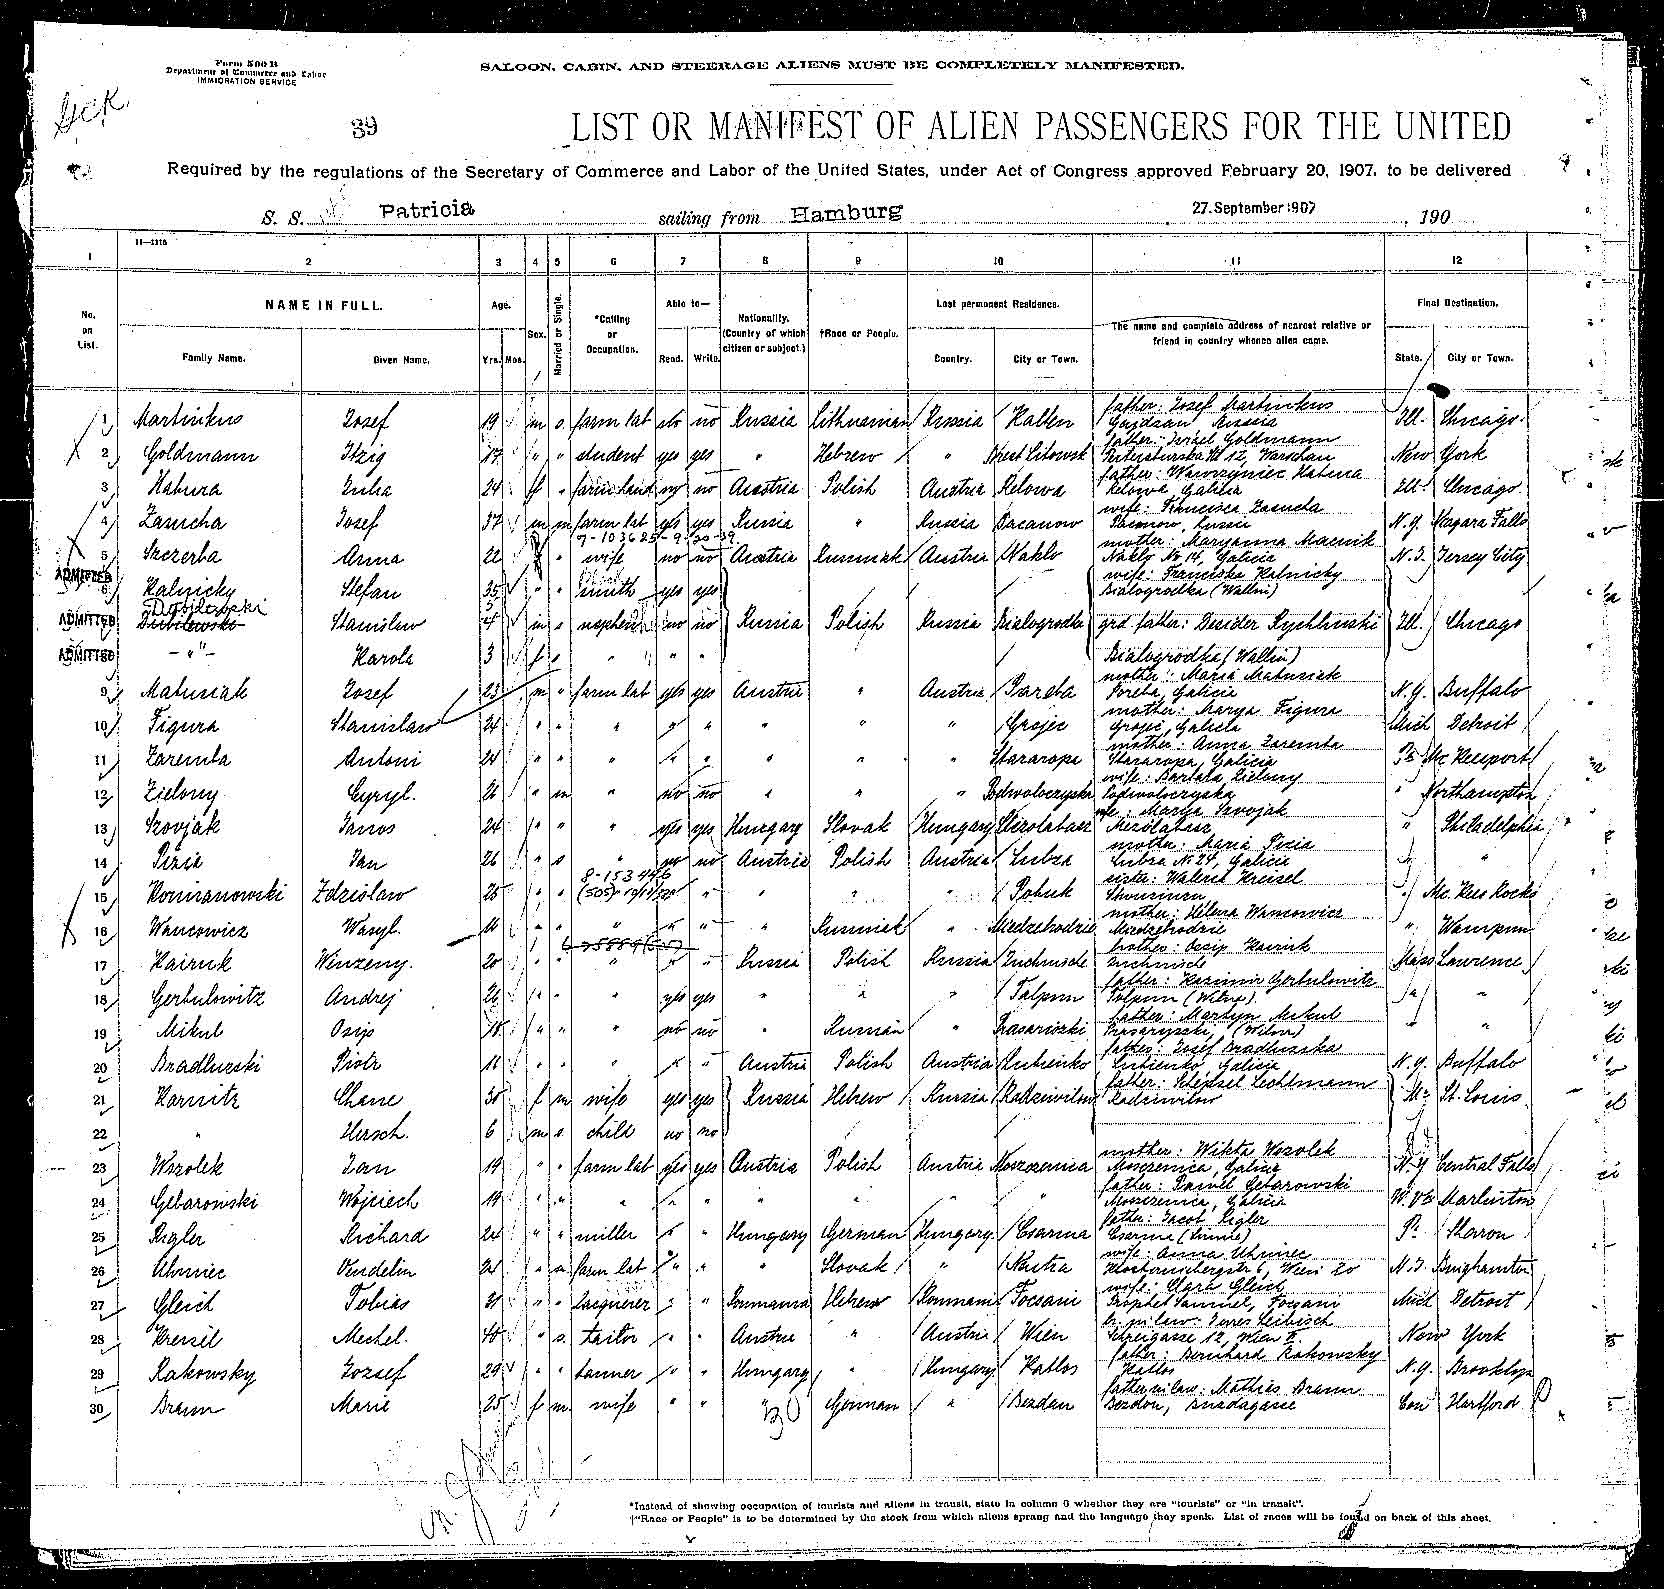 Form 500 B
Department of Commerce and Labor
IMMIGRATION SERVICE
SALOON, CABIN, AND STEERAGE ALIENS MUST BE COMPLETELY MANIFESTED.
39
LIST OR MANIFEST OF ALIEN PASSENGERS FOR THE UNITED
Required by the regulations of the Secretary of Commerce and Labor of the United States, under Act of Congress approved February 20, 1907, to be delivered
S. S. Patricia sailing from Hamburg 27. September 1907, 190
1 2 3 4 5 6 7 8 9 10 11 12
No. on List. NAME IN FULL. Family Name. Given Name. Age. Yrs. Mos. Sex. Married or Single. *Calling or Occupation. Able to— Read. Write. Nationality. (Country of which citizen or subject.) †Race or People. Last permanent Residence. Country. City or Town. The name and complete address of nearest relative or friend in country whence alien came. Final Destination. State. City or Town.
father: Josef Martinkus
1 Martinkus Josef 19 m s farm lab no no Russia Lithuanian Russia Kalten Russia Ill. Chicago
father: Goldmann
2 Goldmann Itzig 17 " " student yes yes " Hebrew " Brest Litowsk 12, Warschau New York
father: Wawrzyniec Habura
3 Habura 24 f " farm hand no no Austria Polish Austria Relowa Relowa Galicia Ill. Chicago
wife: Francisca Zasucha
4 Zasucha Josef 37 m m farm lab yes yes Russia " Russia Pacanow Pacanow, Russia N.Y. Niagara Falls
mother: Maryanna
5 Szczerba Anna 22 " wife no no Austria Russniak Austria Naklo Naklo No 14, Galicia N.J. Jersey City
wife: Franciska Kalnicky
ADMITTED 6 Kalnicky Stefan 35 " " smith yes yes Bialogrodka (Wallin)
ADMITTED Stanislaw 4 m s nephew no no Russia Polish Russia Bialogrodka grd. father: Desider Rychlinski Ill. Chicago
ADMITTED — " — Karola 3 f s " " " Bialogrodka (Wallin)
mother: Maria Matusiak
9 Matusiak Josef 23 m " farm lab yes yes Austria " Austria Poreba Poreba, Galicia N.Y. Buffalo
mother: Marya Figura
10 Figura Stanislaw 24 " " " " " " " " Grojec Grojec, Galicia Mich Detroit
mother: Anna Zaremba
11 Zaremba Antoni 24 " " " " " " " " Stararopa Stararopa, Galicia Pa Mc Keesport
wife: Barbara Zielony
12 Zielony Cyryl. 26 " m " no no " " " Podwoloczyska Podwoloczyska " Northampton
wife: Marya Szvojak
13 Szvojak Janos 24 " " " yes yes Hungary Slovak Hungary Mezolaborz " Philadelphia
mother: Maria Pizia
14 Pizia Jan 26 " s " no no Austria Polish Austria Lubza Lubza No 24, Galicia " "
8-153446
sister: Waleria Kreisel
15 Komranowski Zdzislaw 25 " " " " " " Pobuk " Mc. Kees Rocks
mother: Helena Wancowicz
16 Wancowicz Wasyl. " " " " " " Russniak " Miedzehodzie Miedzehodzie " Wampum
brother: Osip Hairuk
17 Hairuk Wenzeny. 20 " " " " " Russia Polish Russia Mass Lawrence
father: Kasimir Gerbulowitz
18 Gerbulowitz Andrej 26 " " " yes yes " " " Talpun Talpun (Wilna) " "
father: Martyn Mikul
19 Mikul Osip 18 " " " no no " Russian " (Wilna) " "
father: Josef Bradlunska
20 Bradlunski Piotr 16 " " " " " Austria Polish Austria Lubienko Lubienko, Galicia N.Y. Buffalo
father: Lechtmann
21 Karnitz Chane 30 f m wife yes yes Russia Hebrew Russia Radziwilow Radziwilow Mo St. Louis
22 " Hersch. 6 m s child no no
mother: Wikta Wozolek
23 Wozolek Jan 19 " " farm lab yes yes Austria Polish Austria Moszczenica Moszczenica, Galicia N.Y Central Falls
father: Pawel Gebarowski
24 Gebarowski Wojciech 19 " " " " " " " " " Moszczenica, Galicia W. Va
father: Jacob Rigler
25 Rigler Richard 24 " " miller " " Hungary German Hungary Csanna Pa Sharron
wife: Anna Uhrinec
26 Uhrinec Vendelin 24 " farm lab " " " Slovak " , Wien 20 N.J. Binghamton
wife: Clara Gleich
27 Gleich Tobias 31 " " Lacquerer " " Roumania Hebrew Roumani Focsani Prophet Samuel, Focsani Mich Detroit
br. in law: Leibisch
28 Kreisil Mechel. 40 " s tailor " " Austria " Austria Wien 12, Wien 2. New York
father: Bernhard Rakowsky
29 Rakowsky Jozsef 29 " " tanner " " Hungary " Hungary Katlos Katlos N.Y. Brooklyn
father in law: Mathias Braun
30 Braun Marie 25 f m. wife " " " German " Bezdan Bezdan, Con Hartford
30
*Instead of showing occupation of tourists and aliens in transit, state in column 6 whether they are "tourists" or "in transit".
†"Race or People" is to be determined by the stock from which aliens sprang and the language they speak. List of races will be found on back of this sheet.